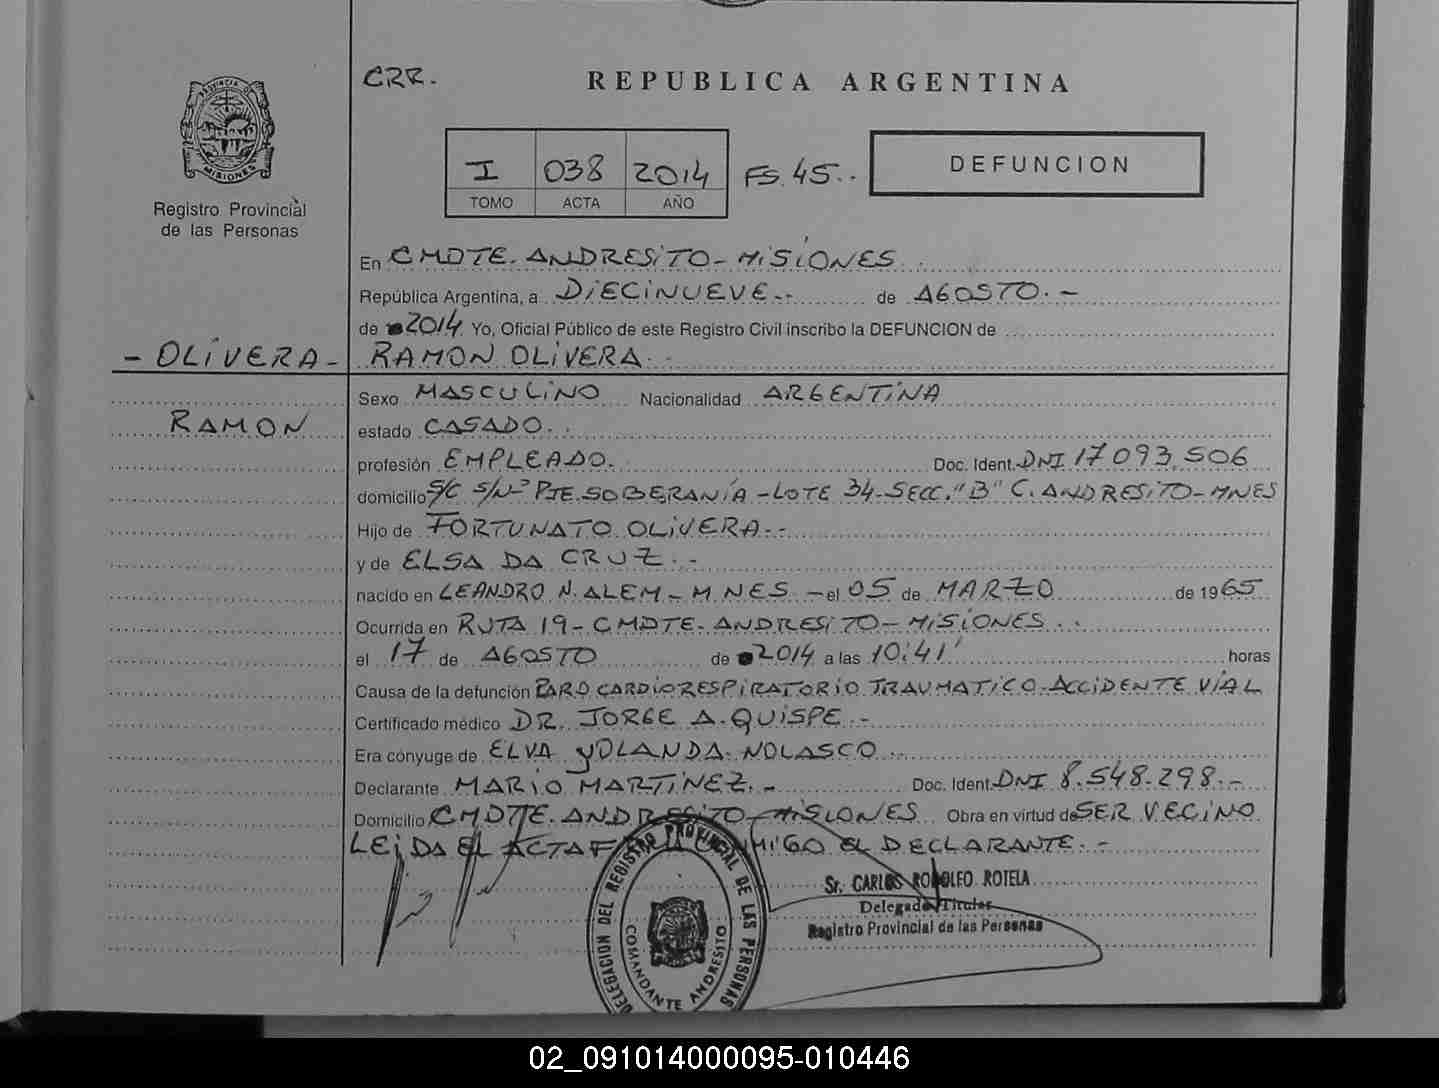 PROVINCIA D
MISIONES
Registro Provincial
de las Personas
CRR.
REPUBLICA ARGENTINA
I 038 2014 FS. 45..
TOMO ACTA AÑO
DEFUNCION
En CMDTE. ANDRESITO - MISIONES
República Argentina, a DIECINUEVE.- de AGOSTO.-
de 2014 Yo, Oficial Público de este Registro Civil inscribo la DEFUNCION de
- OLIVERA - RAMON OLIVERA.
Sexo MASCULINO Nacionalidad ARGENTINA
RAMON estado CASADO.
profesión EMPLEADO. Doc. Ident. DNI 17.093.506
domicilio S/C S/Nº PJE. SOBERANÍA - LOTE 34 - SECC. "B" C. ANDRESITO - MNES
Hijo de FORTUNATO OLIVERA.-
y de ELSA DA CRUZ.-
nacido en LEANDRO N. ALEM - MNES - el 05 de MARZO de 1965
Ocurrida en RUTA 19 - CMDTE. ANDRESITO - MISIONES..
el 17 de AGOSTO de 2014 a las 10:41' horas
Causa de la defunción PARO CARDIORESPIRATORIO TRAUMATICO - ACCIDENTE VIAL
Certificado médico DR. JORGE A. QUISPE.-
Era cónyuge de ELVA YOLANDA NOLASCO.-
Declarante MARIO MARTINEZ.- Doc. Ident. DNI 8.548.298.-
Domicilio CMDTE. ANDRESITO - MISIONES Obra en virtud de SER VECINO
LEIDA EL ACTA EL DECLARANTE.-
Sr. CARLOS RODOLFO ROTELA
Delegado Titular
Registro Provincial de las Personas
DELEGACION DEL REGISTRO PROVINCIAL DE LAS PERSONAS
COMANDANTE ANDRESITO
02_091014000095-010446